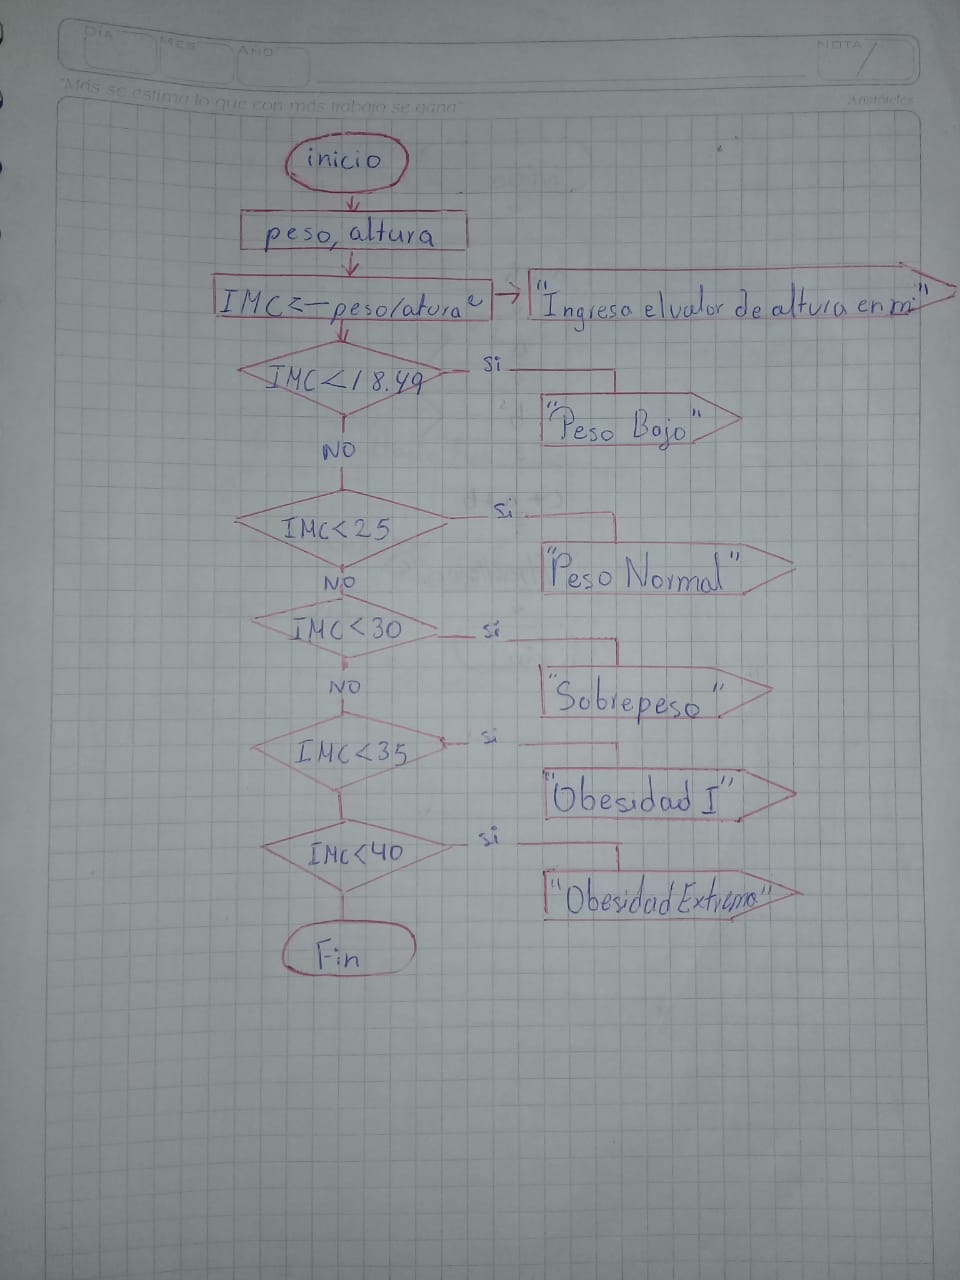 DIA MES AÑO NOTA
"Más se estima lo que con más trabajo se gana" Aristóteles
inicio
peso, altura
IMC <— peso/atura²
"Ingresa el valor de altura en m"
IMC<18.49
Si
"Peso Bajo"
NO
IMC<25
Si
"Peso Normal"
NO
IMC<30
Si
"Sobrepeso"
NO
IMC<35
Si
"Obesidad I"
IMC<40
Si
"Obesidad Extrema"
Fin